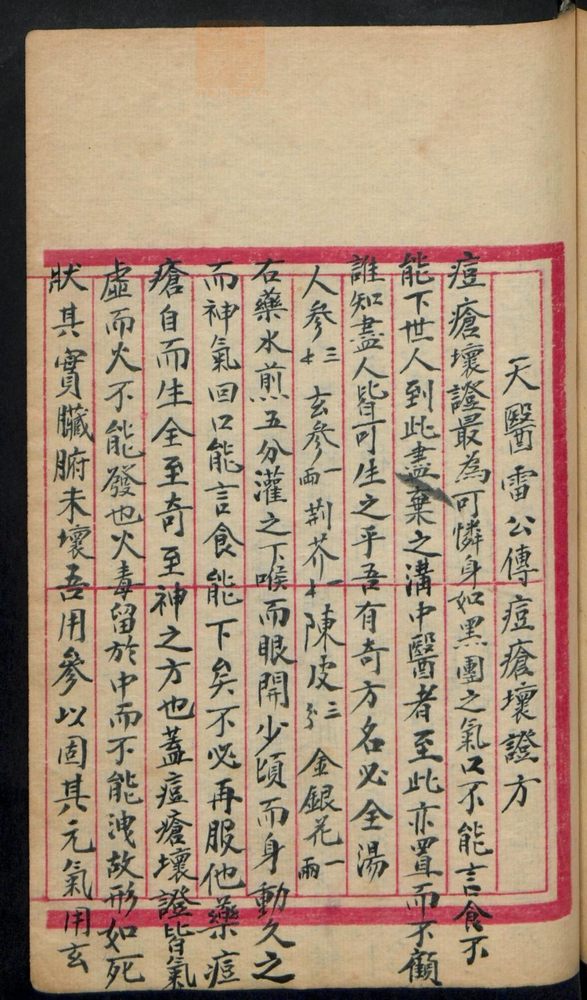 天醫雷公傳痘瘡壞證方
痘瘡壞證最為可憐身如黑團之氣口不能言食不
能下世人到此盡棄之溝中醫者至此亦置而不顧
誰知盡人皆可生之乎吾有奇方名必全湯
人參三十 玄參一兩 荊芥一十 陳皮三分 金銀花一兩
右藥水煎五分灌之下喉而眼開少頃而身動久之
而神氣回口能言食能下矣不必再服他藥痘
瘡自而生全至奇至神之方也蓋痘瘡壞證皆氣
虛而火不能發也火毒留於中而不能洩故形如死
狀其實臟腑未壞吾用參以固其元氣用玄